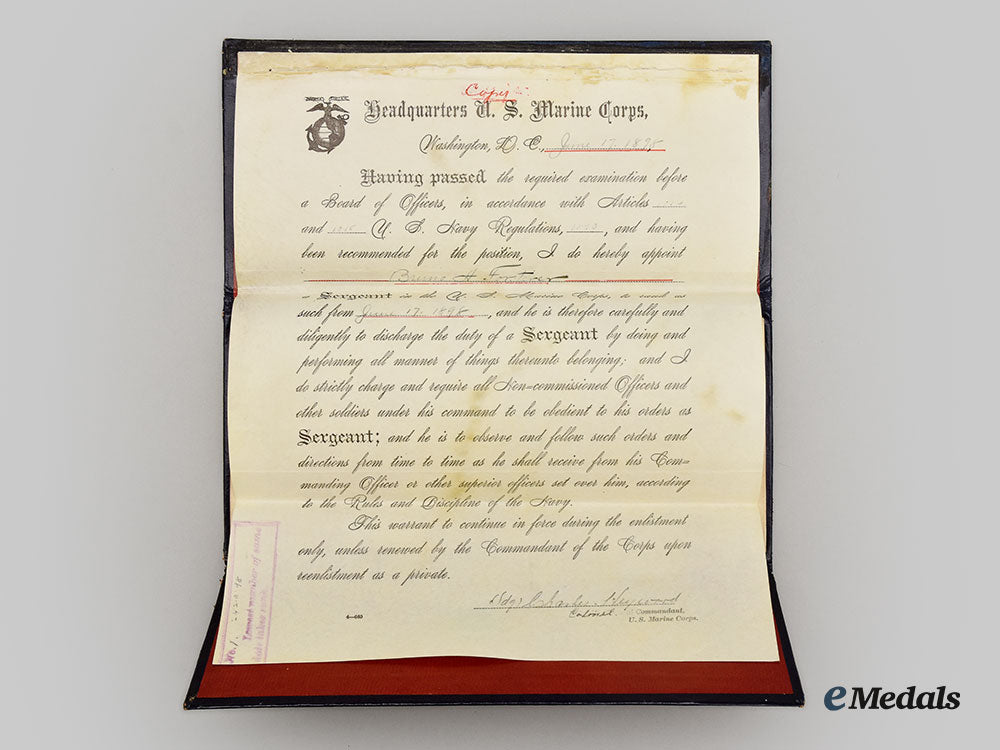 Copy
Headquarters U. S. Marine Corps,
Washington, D. C., June 17. 1898
Having passed the required examination before
a Board of Officers, in accordance with Articles
and U. S. Navy Regulations, , and having
been recommended for the position, I do hereby appoint
H.
a Sergeant in the U. S. Marine Corps, to rank as
such from June 17. 1898, and he is therefore carefully and
diligently to discharge the duty of a Sergeant by doing and
performing all manner of things thereunto belonging; and I
do strictly charge and require all Non=commissioned Officers and
other soldiers under his command to be obedient to his orders as
Sergeant; and he is to observe and follow such orders and
directions from time to time as he shall receive from his Com=
manding Officer or other superior officers set over him, according
to the Rules and Discipline of the Navy.
This warrant to continue in force during the enlistment
only, unless renewed by the Commandant of the Corps upon
reenlistment as a private.
Sdg) Charles Heywood
Colonel Commandant,
U. S. Marine Corps.
No. 1.
Lowest number of same
date takes rank.
eMedals